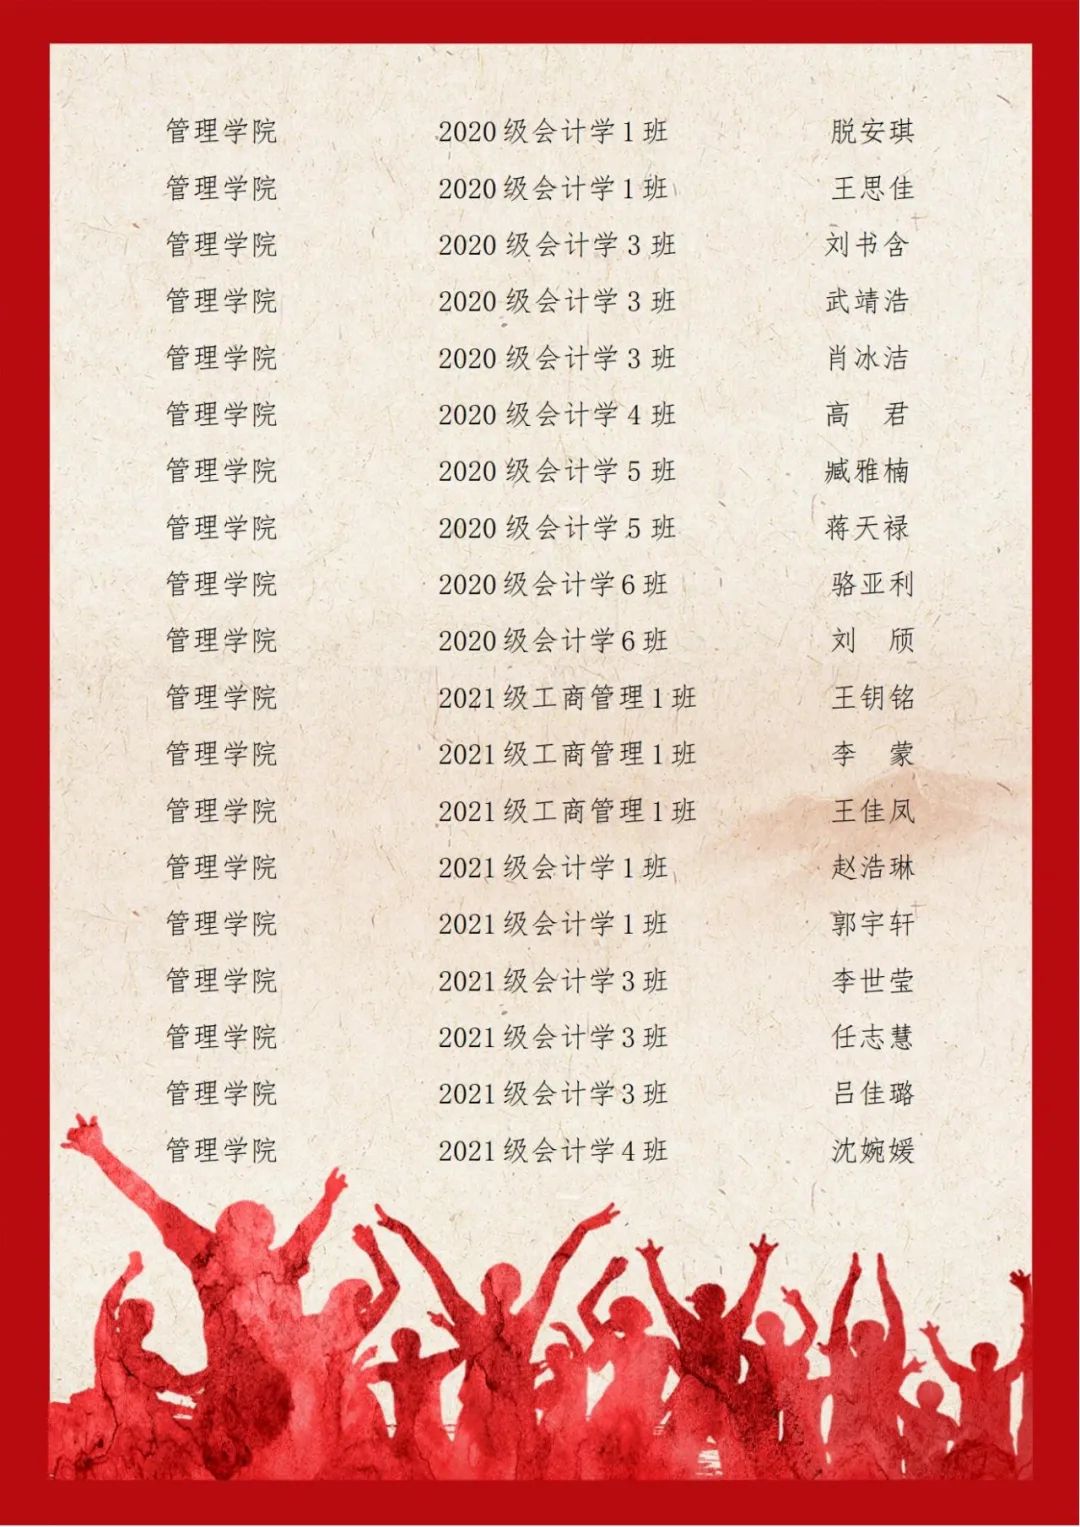 管理学院 2020级会计学1班 脱安琪
管理学院 2020级会计学1班 王思佳
管理学院 2020级会计学3班 刘书含
管理学院 2020级会计学3班 武靖浩
管理学院 2020级会计学3班 肖冰洁
管理学院 2020级会计学4班 高 君
管理学院 2020级会计学5班 臧雅楠
管理学院 2020级会计学5班 蒋天禄
管理学院 2020级会计学6班 骆亚利
管理学院 2020级会计学6班 刘 颀
管理学院 2021级工商管理1班 王钥铭
管理学院 2021级工商管理1班 李 蒙
管理学院 2021级工商管理1班 王佳凤
管理学院 2021级会计学1班 赵浩琳
管理学院 2021级会计学1班 郭宇轩
管理学院 2021级会计学3班 李世莹
管理学院 2021级会计学3班 任志慧
管理学院 2021级会计学3班 吕佳璐
管理学院 2021级会计学4班 沈婉媛